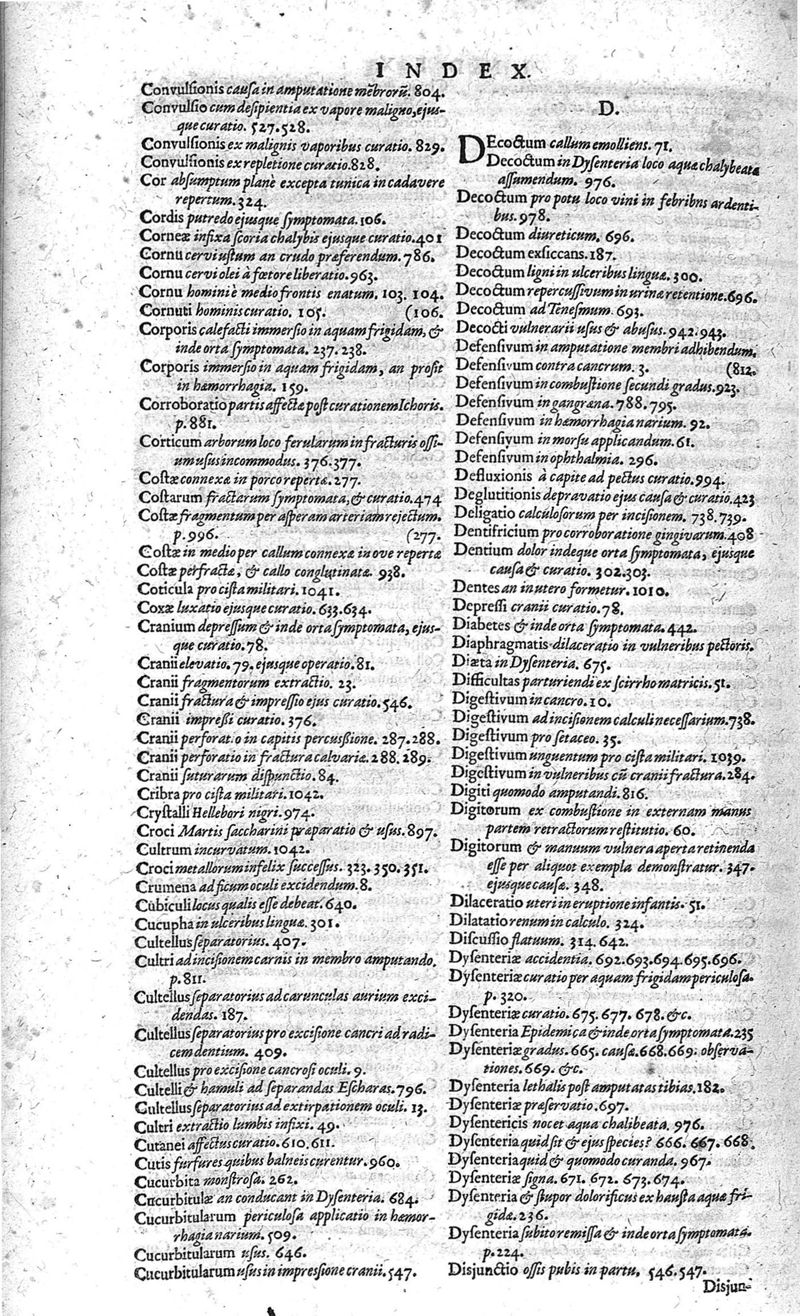 INDEX.
Convulsionis causa in amputatione mẽbrorũ. 804.
Convulsio cum desipientia ex vapore maligno, ejus-
que curatio. 527.528.
Convulsionis ex malignis vaporibus curatio. 829.
Convulsionis ex repletione curatio.828.
Cor absumptum planè excepta tunica in cadavere
repertum. 324.
Cordis putredo ejusque symptomata. 106.
Corneæ infixa scoria chalybis ejusque curatio.401
Cornu cervi ustum an crudo præferendum. 786.
Cornu cervi olei à fœtore liberatio. 963.
Cornu homini è medio frontis enatum. 103. 104.
Cornuti hominis curatio. 105. (106.
Corporis calefacti immersio in aquam frigidam, &
inde orta symptomata. 237. 238.
Corporis immersio in aquam frigidam, an prosit
in hæmorrhagia. 159.
Corroboratio partis affectæ post curationem Ichoris.
p. 881.
Corticum arborum loco ferularum in fracturis ossi-
um usus incommodus. 376.377.
Costæ connexæ in porco repertæ. 277.
Costarum fractarum symptomata, & curatio.474
Costæ fragmentum per asperam arteriam rejectum.
p. 996. (277.
Costæ in medio per callum connexæ in ove repertæ
Costæ perfractæ, & callo conglutinatæ. 938.
Coticula pro cista militari. 1041.
Coxæ luxatio ejusque curatio. 633.634.
Cranium depressum & inde orta symptomata, ejus-
que curatio.78.
Cranii elevatio. 79. ejusque operatio. 81.
Cranii fragmentorum extractio. 23.
Cranii fractura & impressio ejus curatio. 546.
Cranii impressi curatio. 376.
Cranii perforatio in capitis percussione. 287.288.
Cranii perforatio in fractura calvariæ. 288.289.
Cranii suturarum dispunctio. 84.
Cribra pro cista militari. 1042.
Crystalli Hellebori nigri. 974.
Croci Martis saccharini præparatio & usus. 897.
Cultrum incurvatum. 1042.
Croci metallorum infelix successus. 323. 350. 351.
Crumena ad ficum oculi excidendum. 8.
Cubiculi locus qualis esse debeat. 640.
Cucupha in ulceribus linguæ. 301.
Cultellus separatorius. 407.
Cultri ad incisionem carnis in membro amputando.
p. 811.
Cultellus separatorius ad carunculas aurium exci-
dendas. 187.
Cultellus separatorius pro excisione cancri ad radi-
cem dentium. 409.
Cultellus pro excisione cancrosi oculi. 9.
Cultelli & hamuli ad separandas Escharas. 796.
Cultellus separatorius ad extirpationem oculi. 13.
Cultri extractio lumbis infixi. 49.
Cutanei affectus curatio. 610. 611.
Cutis furfures quibus balneis curentur. 960.
Cucurbita monstrosa. 262.
Cucurbitulæ an conducant in Dysenteria. 684.
Cucurbitularum periculosa applicatio in hæmor-
rhagia narium. 509.
Cucurbitularum usus. 646.
Cucurbitularum usus in impressione cranii. 547.
D.
DEcoctum callum emolliens. 71.
Decoctum in Dysenteria loco aquæ chalybeatæ
assumendum. 976.
Decoctum pro potu loco vini in febribus ardenti-
bus. 978.
Decoctum diureticum. 696.
Decoctum exsiccans. 187.
Decoctum ligni in ulceribus linguæ. 300.
Decoctum repercussivum in urinæ retentione.696.
Decoctum ad Tenesmum. 693.
Decocti vulnerarii usus & abusus. 942.943.
Defensivum in amputatione membri adhibendum.
Defensivum contra cancrum. 3. (812.
Defensivum in combustione secundi gradus. 923.
Defensivum in gangræna. 788. 795.
Defensivum in hæmorrhagia narium. 92.
Defensivum in morsu applicandum. 61.
Defensivum in ophthalmia. 296.
Defluxionis à capite ad pectus curatio. 994.
Deglutitionis depravatio ejus causa & curatio.423
Deligatio calculosorum per incisionem. 738.739.
Dentifricium pro corroboratione gingivarum.408
Dentium dolor indeque orta symptomata, ejusque
causa & curatio. 302.303.
Dentes an in utero formetur. 1010.
Depressi cranii curatio. 78.
Diabetes & inde orta symptomata. 442.
Diaphragmatis dilaceratio in vulneribus pectoris.
Diæta in Dysenteria. 675.
Difficultas parturiendi ex scirrho matricis. 51.
Digestivum in cancro. 10.
Digestivum ad incisionem calculi necessarium.738.
Digestivum pro setaceo. 35.
Digestivum unguentum pro cista militari. 1039.
Digestivum in vulneribus cũ cranii fractura.284.
Digiti quomodo amputandi. 816.
Digitorum ex combustione in externam manus
partem retractorum restitutio. 60.
Digitorum & manuum vulnera aperta retinenda
esse per aliquot exempla demonstratur. 347.
ejusque causæ. 348.
Dilaceratio uteri in eruptione infantis. 51.
Dilatatio renum in calculo. 324.
Discussio flatuum. 314.642.
Dysenteriæ accidentia. 692.693.694.695.696.
Dysenteriæ curatio per aquam frigidam periculosa.
p. 320.
Dysenteriæ curatio. 675. 677. 678. &c.
Dysenteria Epidemica & inde orta symptomata.235
Dysenteriæ gradus. 665. causa.668.669. observa-
tiones. 669. &c.
Dysenteria lethalis post amputatas tibias. 182.
Dysenteriæ præservatio. 697.
Dysentericis nocet aqua chalibeata. 976.
Dysenteria quid sit & ejus species? 666. 667. 668.
Dysenteria quid & quomodo curanda. 967.
Dysenteriæ signa. 671. 672. 673.674.
Dysenteria & stupor dolorificus ex hausta aqua fri-
gida. 236.
Dysenteria subito remissa & inde orta symptomata.
p. 224.
Disjunctio ossis pubis in partu. 546.547.
Disjun-